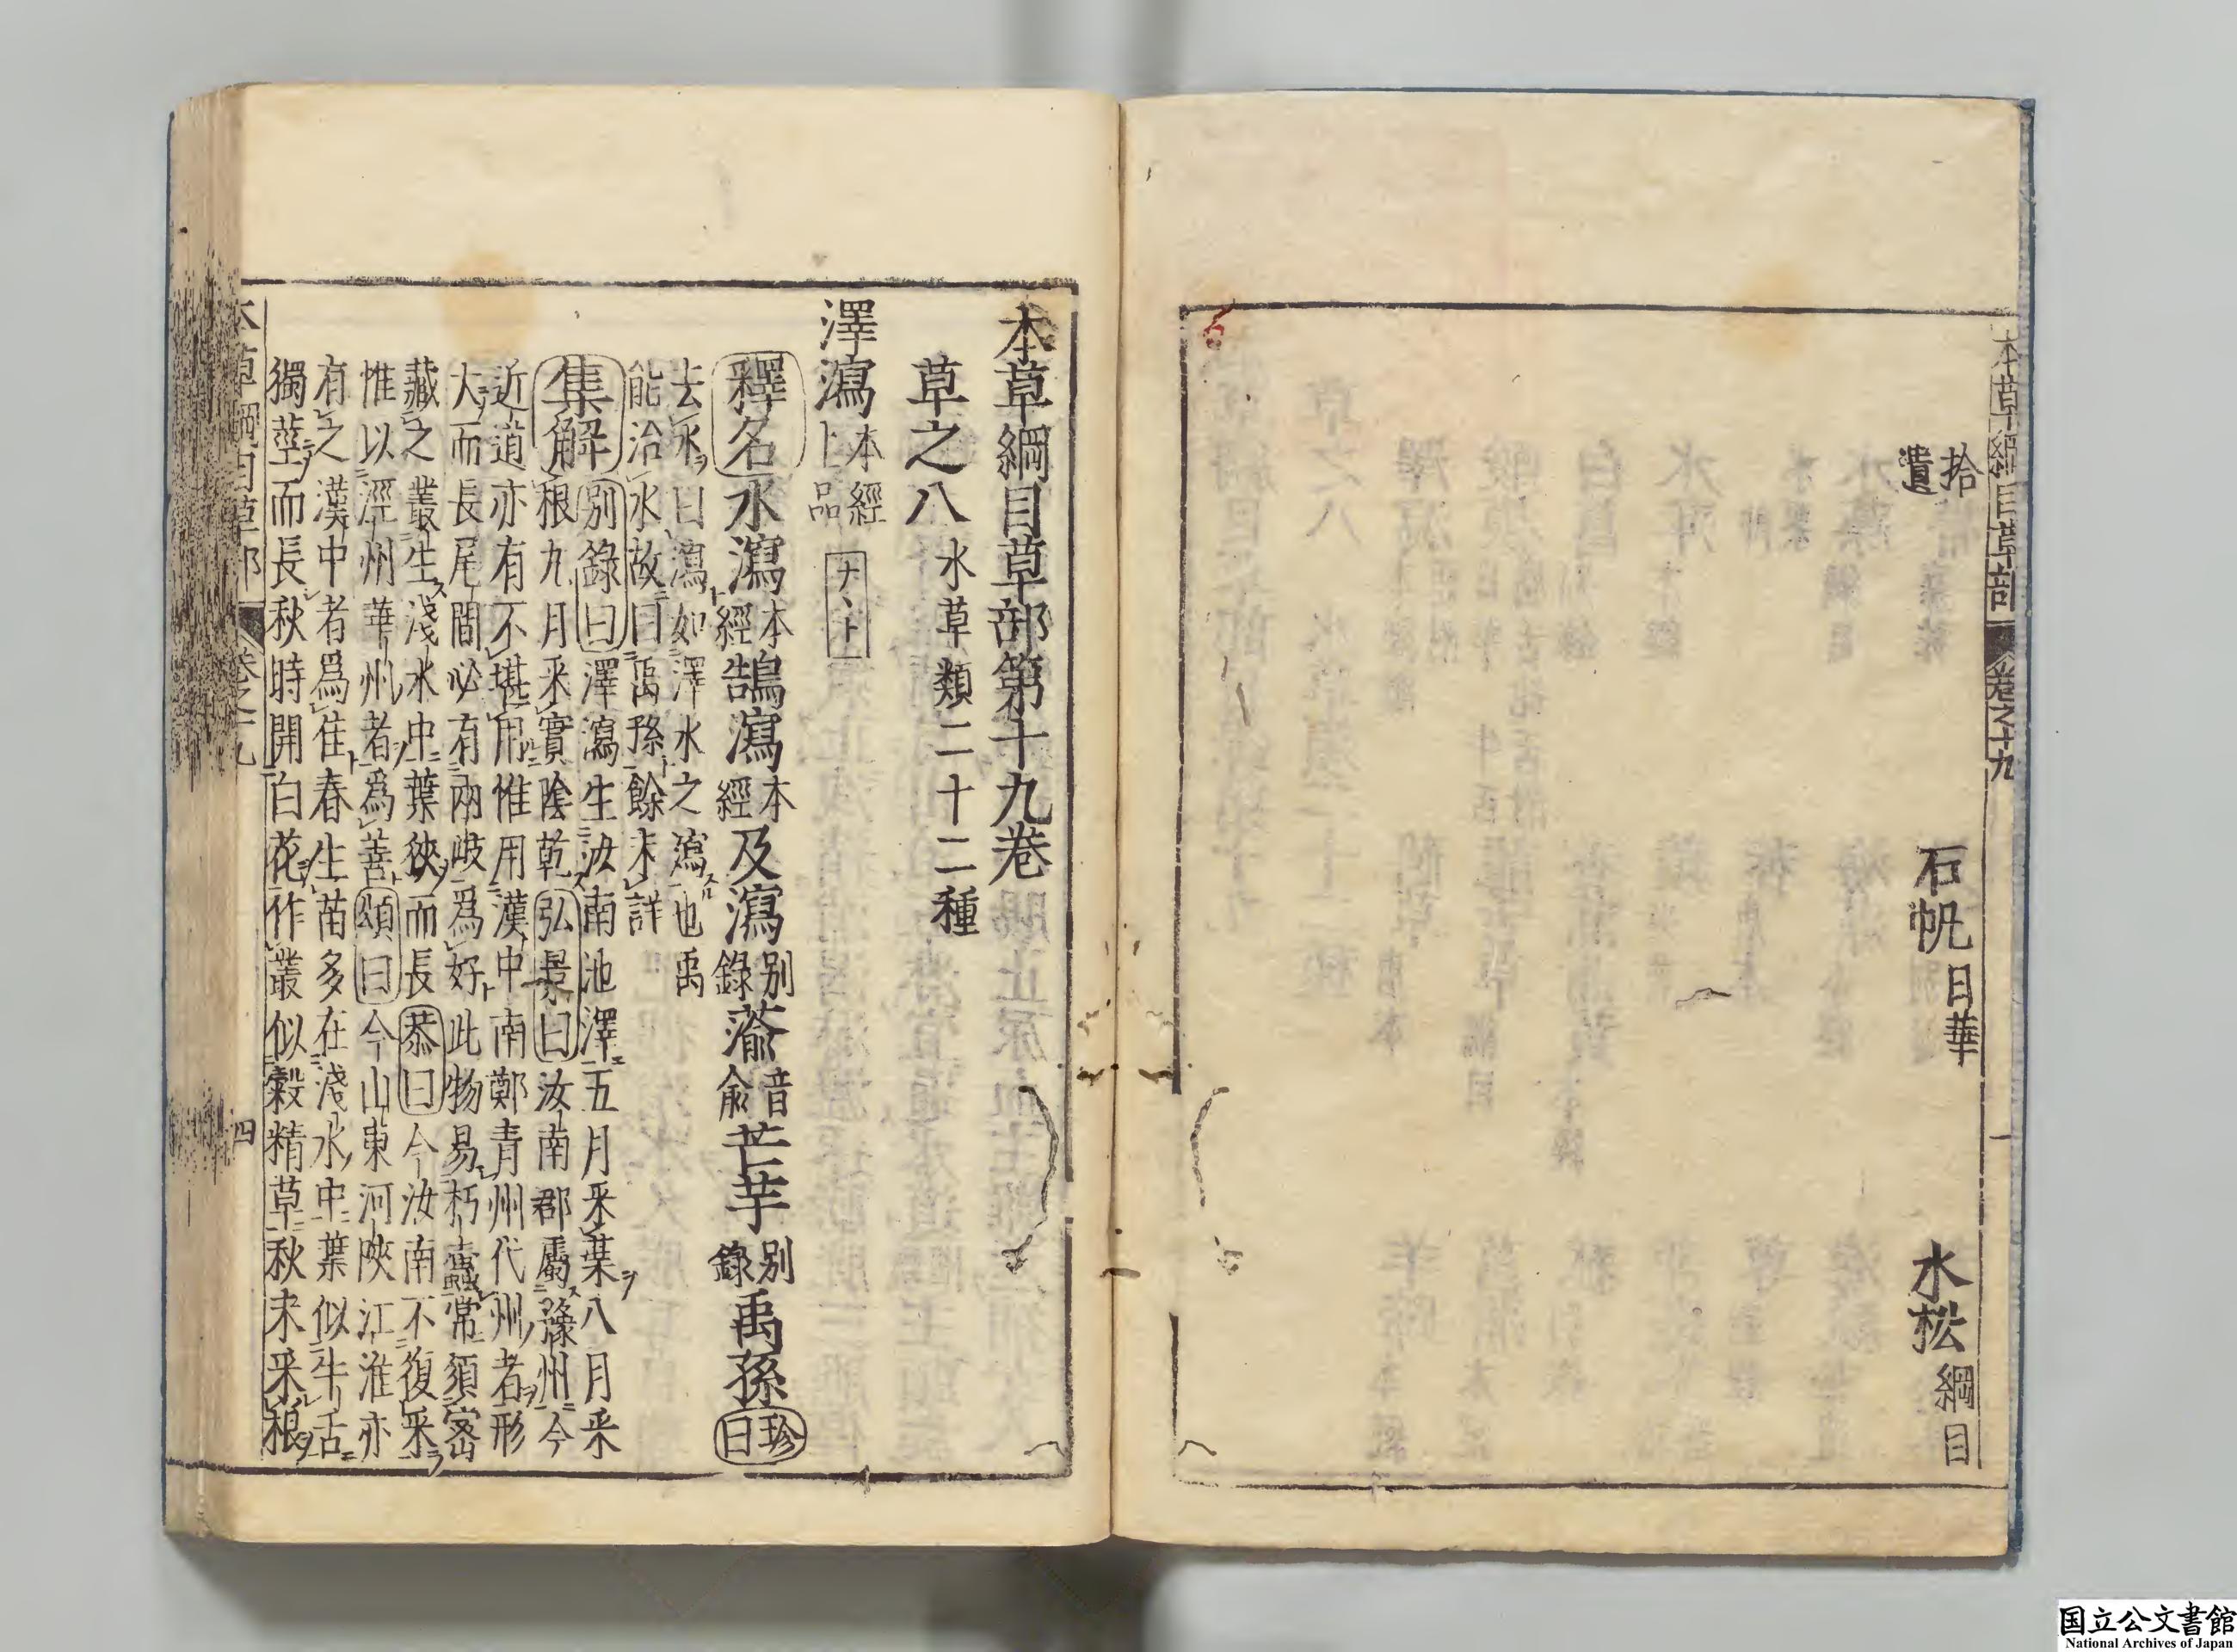 本草綱目草部 卷之十九 一
拾遺 石帆 日華 水松 綱目
本草綱目草部第十九卷
草之八 水草類二十二種
澤瀉 本經上品
釋名 水瀉 本經 鵠瀉 本經 及瀉 别錄 蕍 音俞 芒芋 别錄 禹孫 珍曰
去水曰瀉如澤水之瀉也禹
能治水故曰禹孫餘未詳
集解 別錄曰澤瀉生汝南池澤五月采葉八月采
根九月采實陰乾弘景曰汝南郡屬豫州今
近道亦有不堪用惟用漢中南鄭青州代州者形
大而長尾間必有兩歧爲好此物易朽蠹常須密
藏之叢生淺水中葉狹而長恭曰今汝南不復采
惟以涇州華州者爲善頌曰今山東河陝江淮亦
有之漢中者爲佳春生苗多在淺水中葉似牛舌
獨莖而長秋時開白花作叢似穀精草秋末采根
本草綱目草部 卷之十九 四
国立公文書館
National Archives of Japan